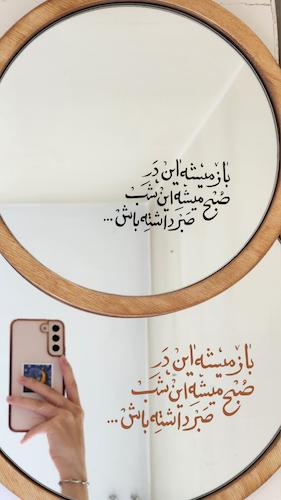 باز میشه این دَر
صُبح میشه این شَب
صَبر داشته باش ...
باز میشه این دَر
صُبح میشه این شَب
صَبر داشته باش ...